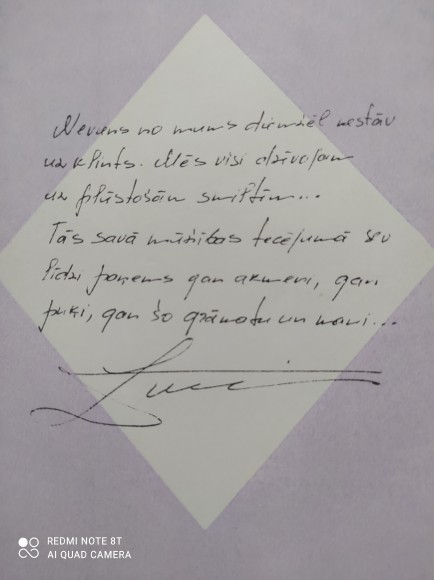 Neviens no mums diemžēl nestāv
uz klints. Mēs visi dzīvojam
uz plūstošām smiltīm...
Tās savā mūžības tecējumā sev
līdzi paņems gan akmeni, gan
puķi, gan šo grāmatu un mani...
REDMI NOTE 8T
AI QUAD CAMERA